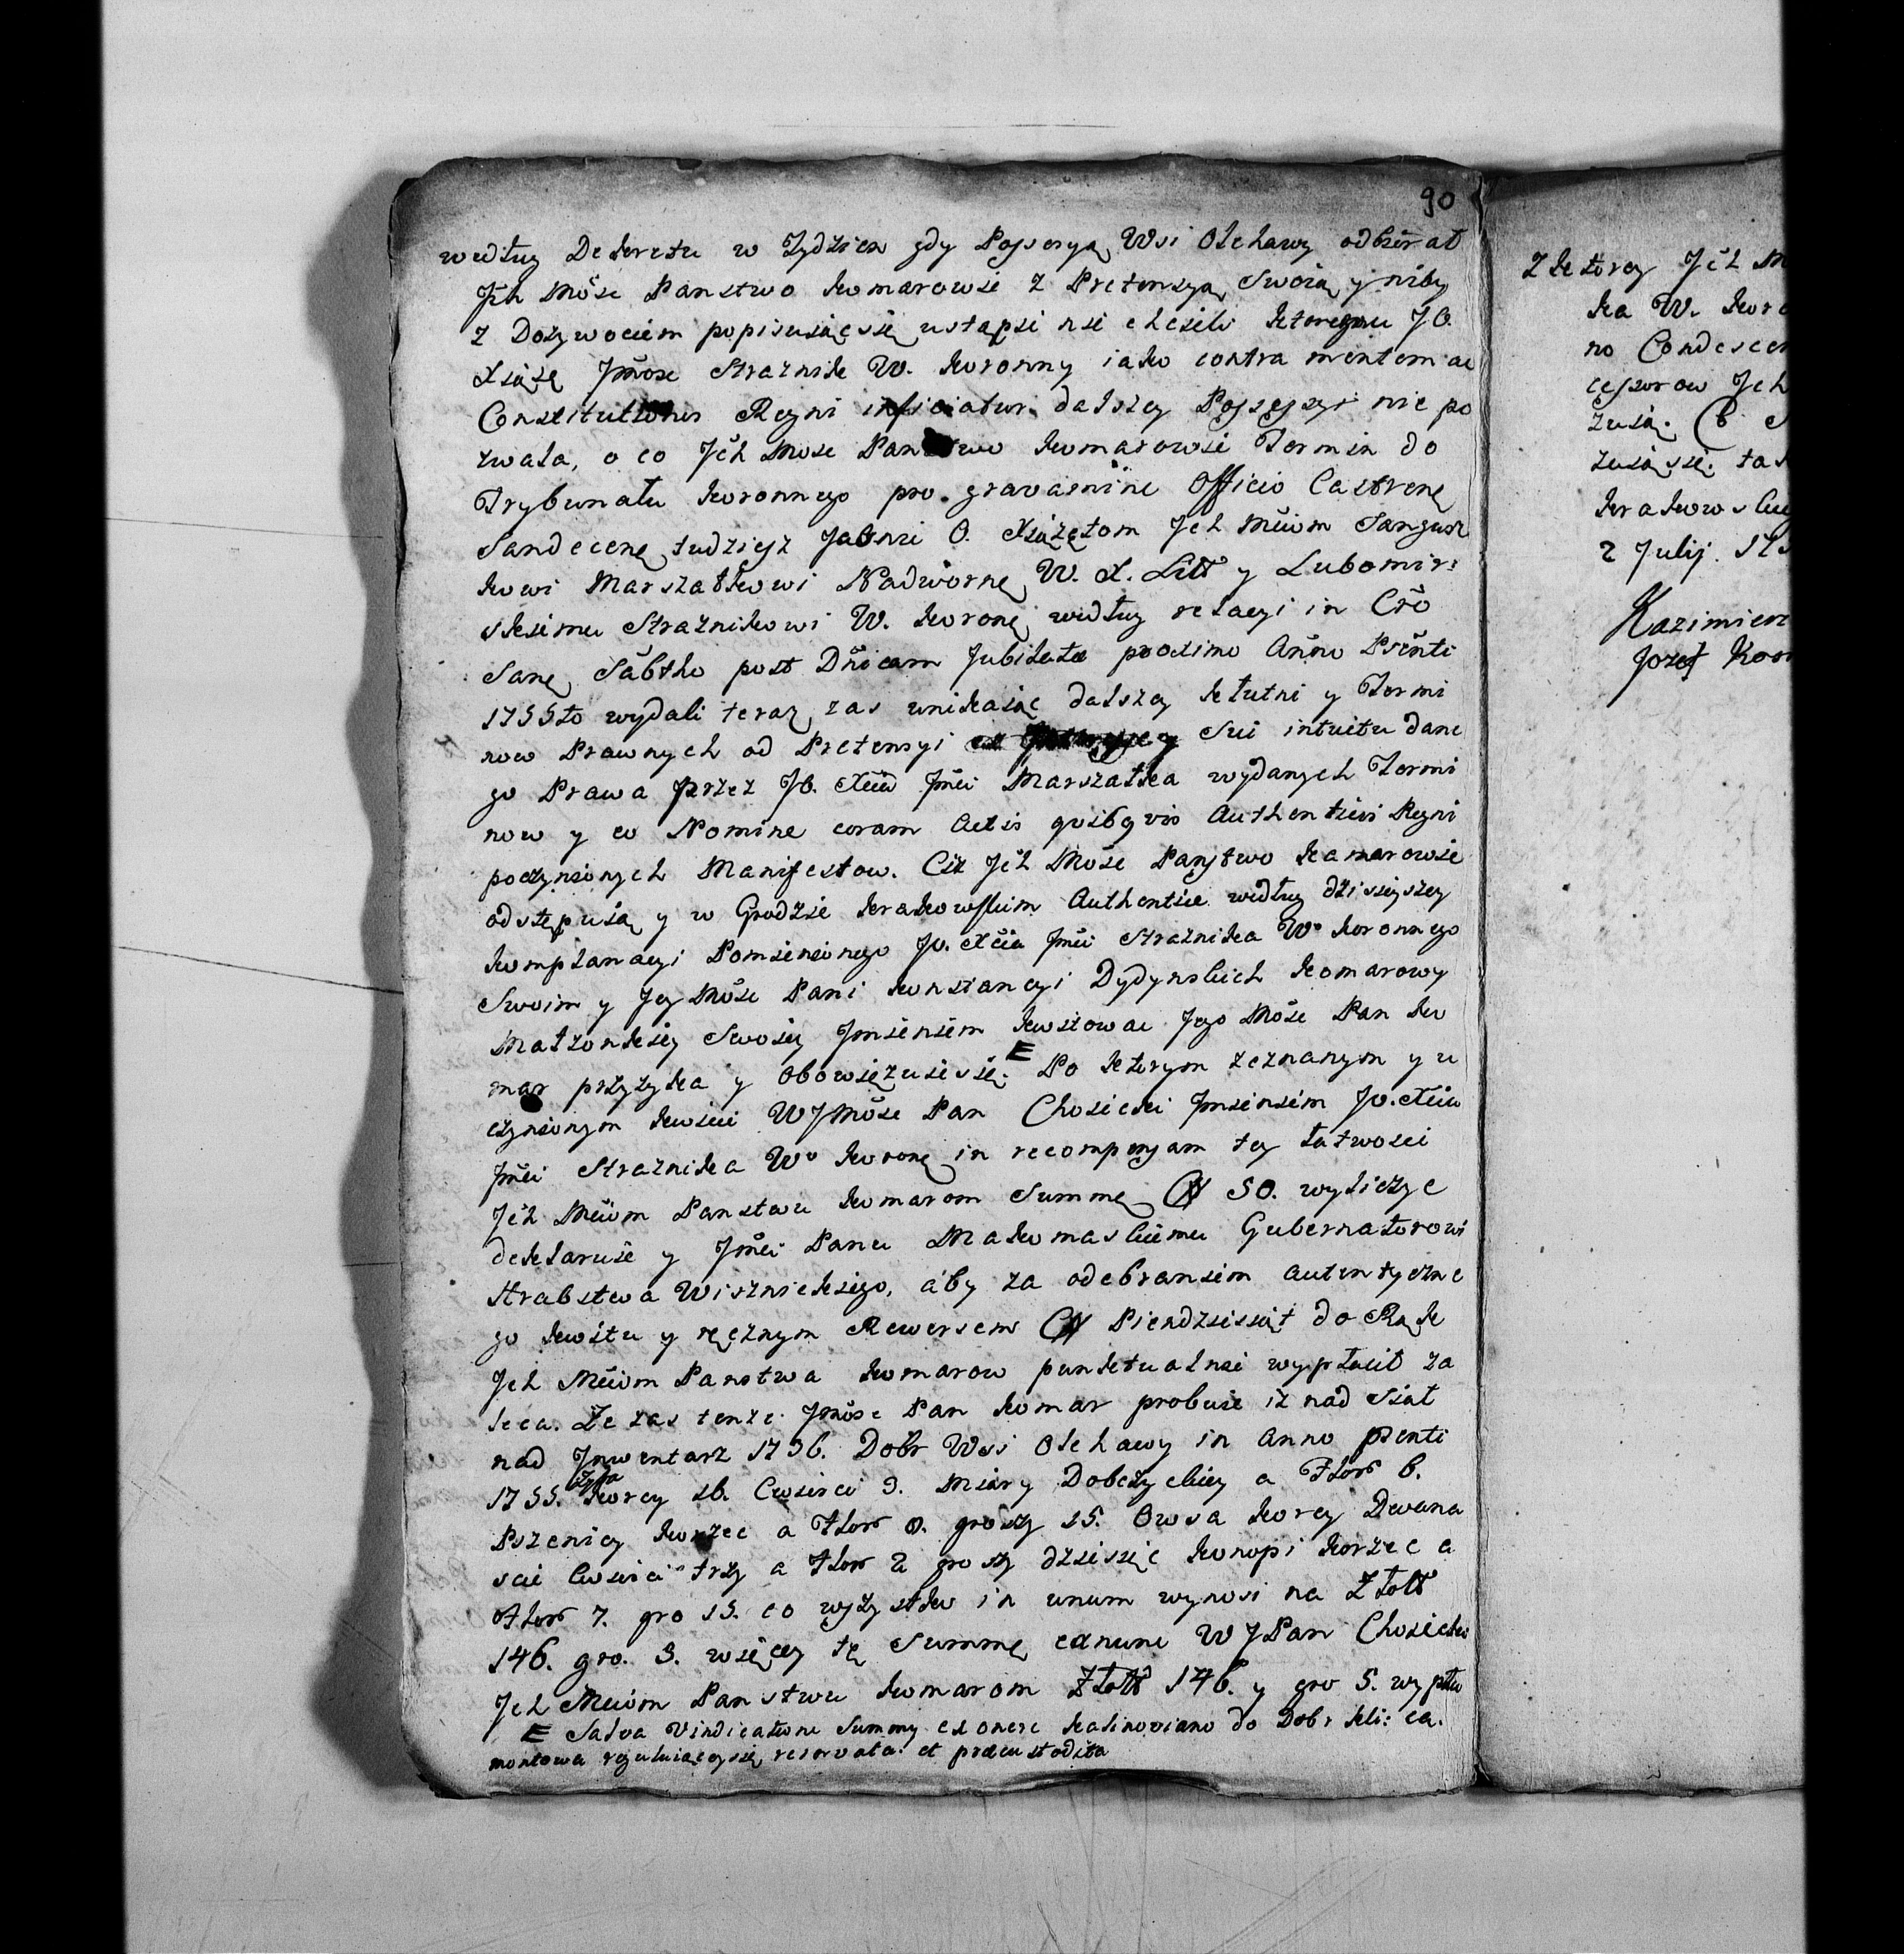 90
według Dekretu w Tydzien gdy Possesyą Wsi Olchawy odbierał
Jch Mośc Panstwo Komarowie z Pretensyą Swoią y niby
z Dożywociem popisuiąc się ustąpic nie chcieli ktoremu JO.
Xsiąże Jmośc Straznik W. Koronny iako contra mentem ac
Constitutiones Regni inficiatur dalszey Possessyi nie po
zwala, o co Jch Mosc Panstwo Komarowie Termin do
Trybunału Koronnego pro gravamine Officio Castren
Sandecen tudziesz Jasnie O. Xsiążętom Jch Mciom Sangusz
kowi Marszałkowi Nadworne W. X. Litt y Lubomir:
skiemu Straznikowi W. Korone według relacyi in Cro
Sane Sabtho post Dnicam Jubilate proximo Anno Psenti
1755to wydali teraz zas unikaiąc dalszey kłutni y Termi
now Prawnych od Pretensyi Sui intuitu dane
go Prawa przez JO. Xcia Jmci Marszałka wydanych Termi
now y eo Nomine coram Actis quibqvis Authenticis Regni
poczynionych Manifestow. Ciz Jch Mośc Panstwo Komarowie
odstępuią y w Grodzie Krakowskim Authentice według dzisieyszey
Komplanacyi Pomienionego Jo. Xcia Jmci Straznika Wo Koronnego
Swoim y Jey Mośc Pani Konstancyi Dydynskich Komarowy
Małzonkiey Swoiey Jmieniem kwitowac Jego Mośc Pan Ko
mar przyżyka y Obowięzuie się. E Po ktorym zeznanym y u
czynionym kwicie WJMośc Pan Chosicki Jmieniem Jo. Xcia
Jmci Straznika Wo Korone in recompensam tey łatwosci
Jch Mciom Panstwu Komarom Summę 50. wyliczyc
deklaruie y Jmci Panu Makomaskiemu Gubernatorowi
Hrabstwa Wisznickiego, aby za odebraniem autentyczne
go kwitu y ręcznym Rewersem Piendziesiąt do Rąk
Jch Mciom Panstwa Komarow punktualnie wypłacił za
leca. Ze zas tenze Jmośc Pan Komar probuie iz nad Siał
nad Jnwentarz 1736. Dobr Wsi Olchawy in Anno psenti
1755. Zyta Korcy 16. Cwierci 3. Miary Dobczyckiey a Flor 6.
Pszenicy Korzec a Flor 8. groszy 15. Owsa Korcy Dwana
scie Cwierci trzy a Flor 2 groszy dziesięc Konopi Korzec a
Flor 7. gro 15. co wszystko in unum wynosi na Złott
146. gro. 5. więcey tę Summę exnunc WJPan Chosicki
Jch Mciom Panstwu Komarom Złott 146. y gro 5. wypła
E Salva Vindicatione Summy ex onere Kalinoviano do Dobr Kli: ca.
montowa reguluiącey się reservata et præcustodita
Z ktorey Jch M
ka W. Koro
no Condescen
cessorow Jch
zuią.
zuią sie. ta
Krakowskie
2 Julij. 175
Kazimierz
Jozef Kom